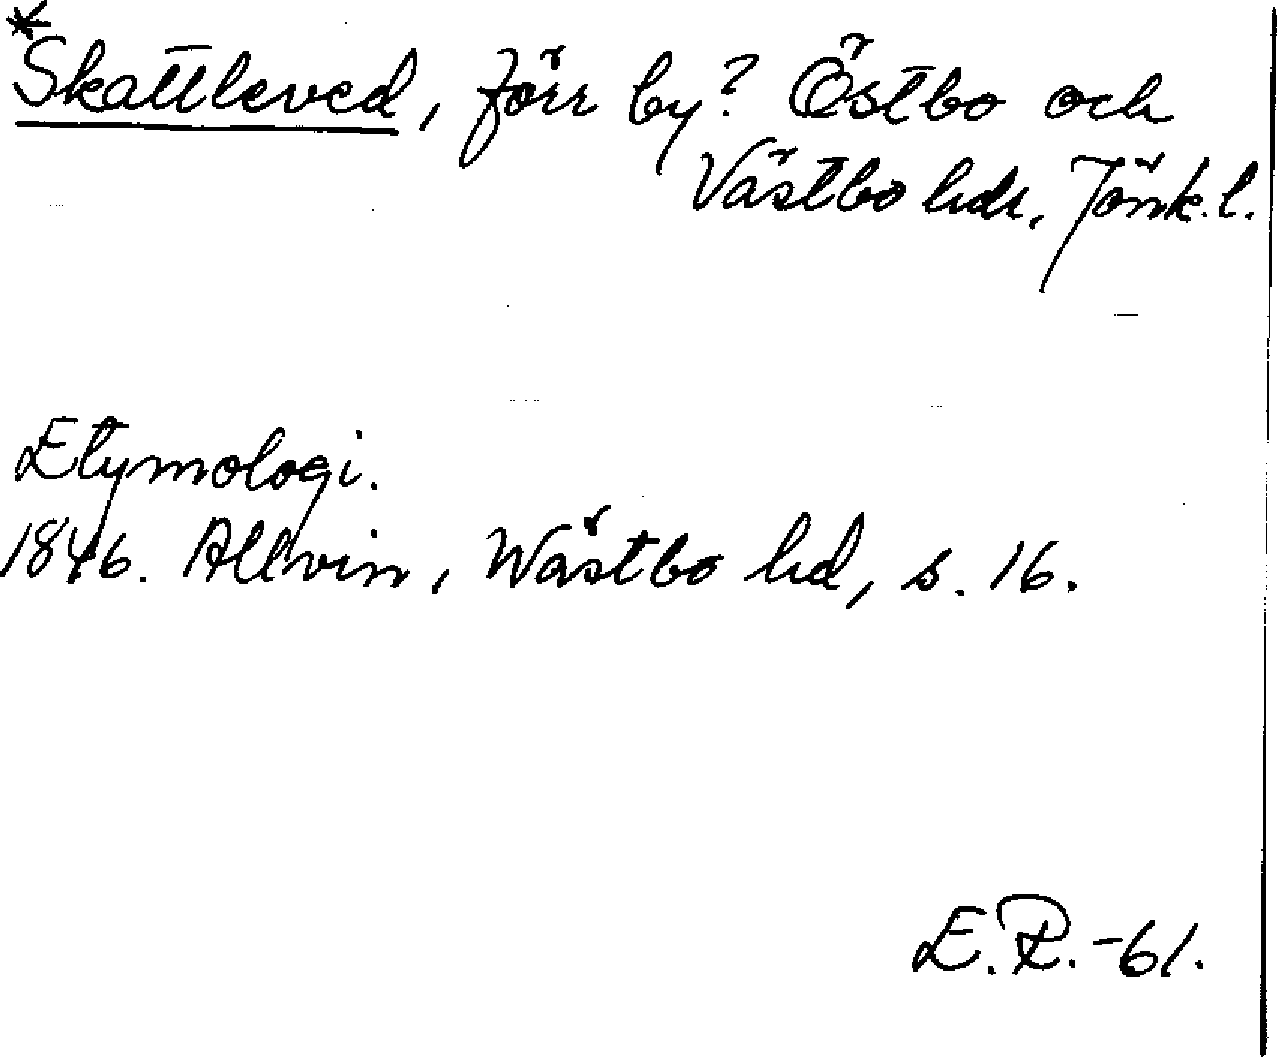 *Skattleved, förr by? Östbo och
Västbo hdr, Jönk.l.
Etymologi.
1846. Allvin, Wästbo hd, s. 16.
E.R.-61.